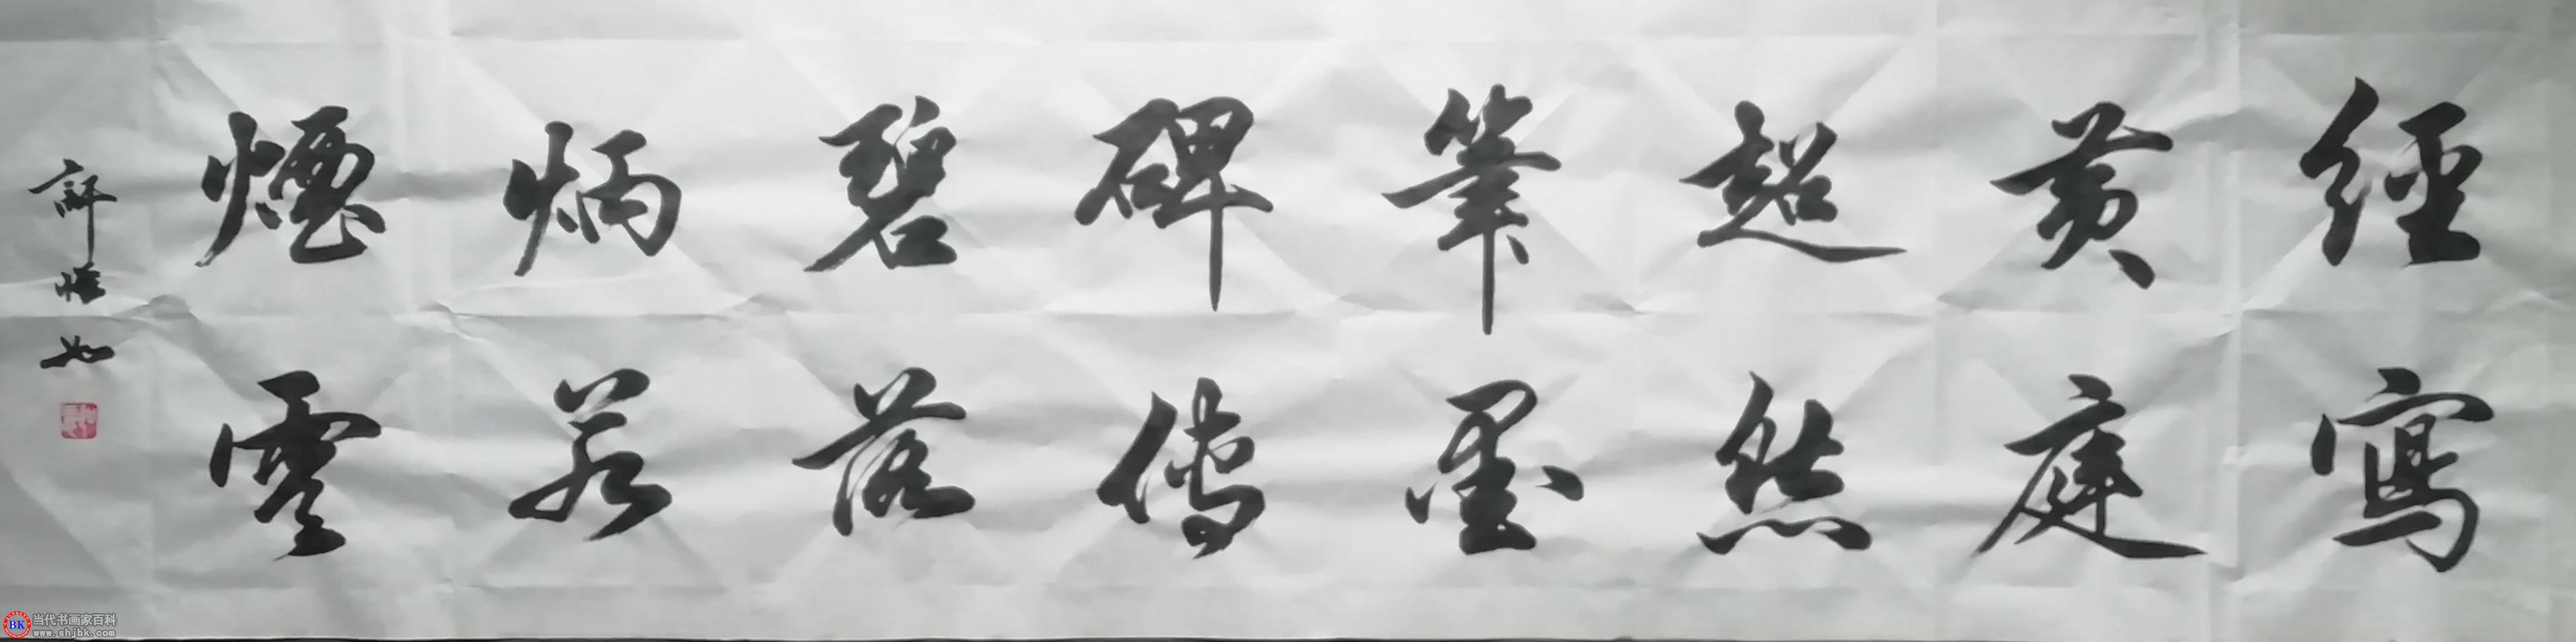 經寫
黄庭
超然
筆墨
碑傳
碧落
炳若
煙雲
許
如
BK
当代书画家百科
www.shjbk.com